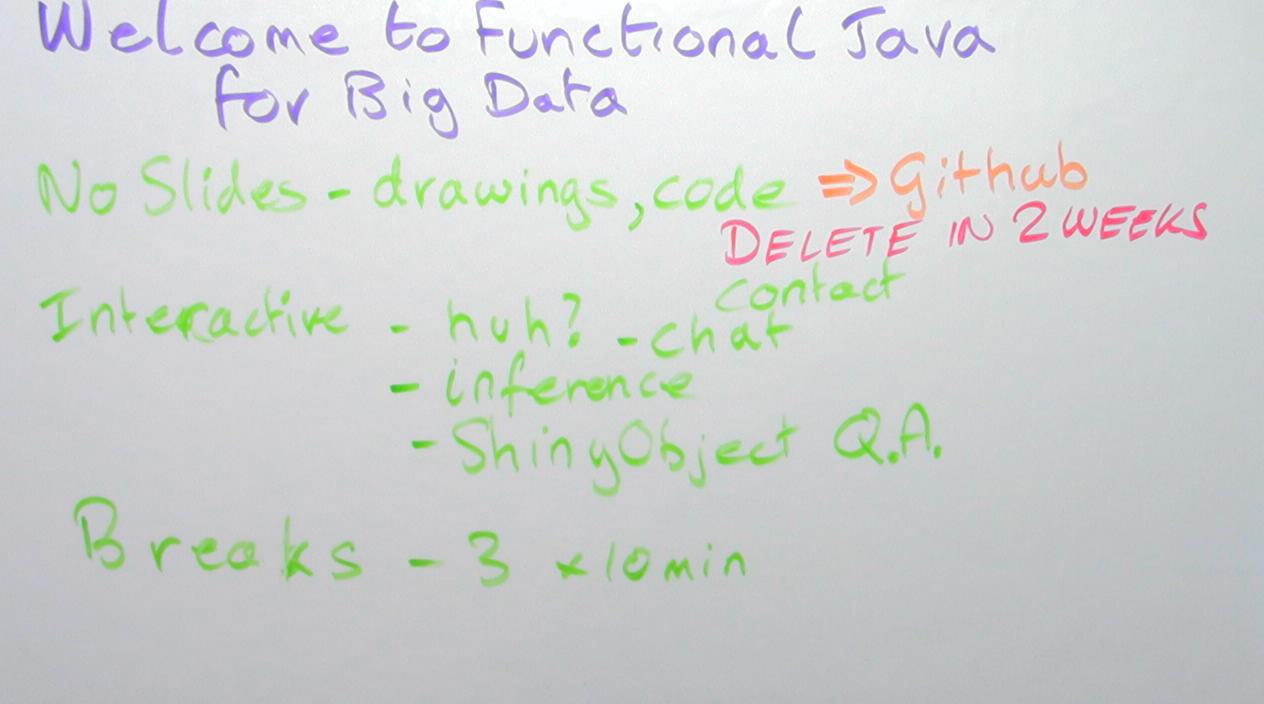 Welcome to Functional Java
for Big Data
No Slides - drawings, code => Github
DELETE IN 2 WEEKS
contact
Interactive - huh? - chat
- inference
- ShinyObject Q.A.
Breaks - 3 x 10 min